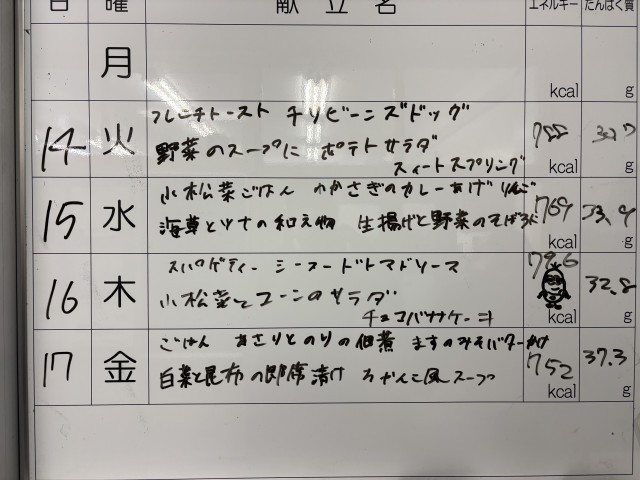 日 曜 献立名 エネルギー たんぱく質
月 kcal g
フレンチトースト チリビーンズドッグ
14 火 野菜のスープに ポテトサラダ
スイートスプリング
kcal g
小松菜ごはん わかさぎのカレーあげ りんご
15 水 海草とツナの和え物 生揚げと野菜のそぼろに
769 kcal 33.9 g
スパゲティー シーフードトマトソース
16 木 小松菜とコーンのサラダ
チョコバナナケーキ
79.6 kcal 32.8 g
ごはん あさりとのりの佃煮 ますのみそバターかけ
17 金 白菜と昆布の即席漬け ちゃんこ風スープ
752 kcal 37.3 g